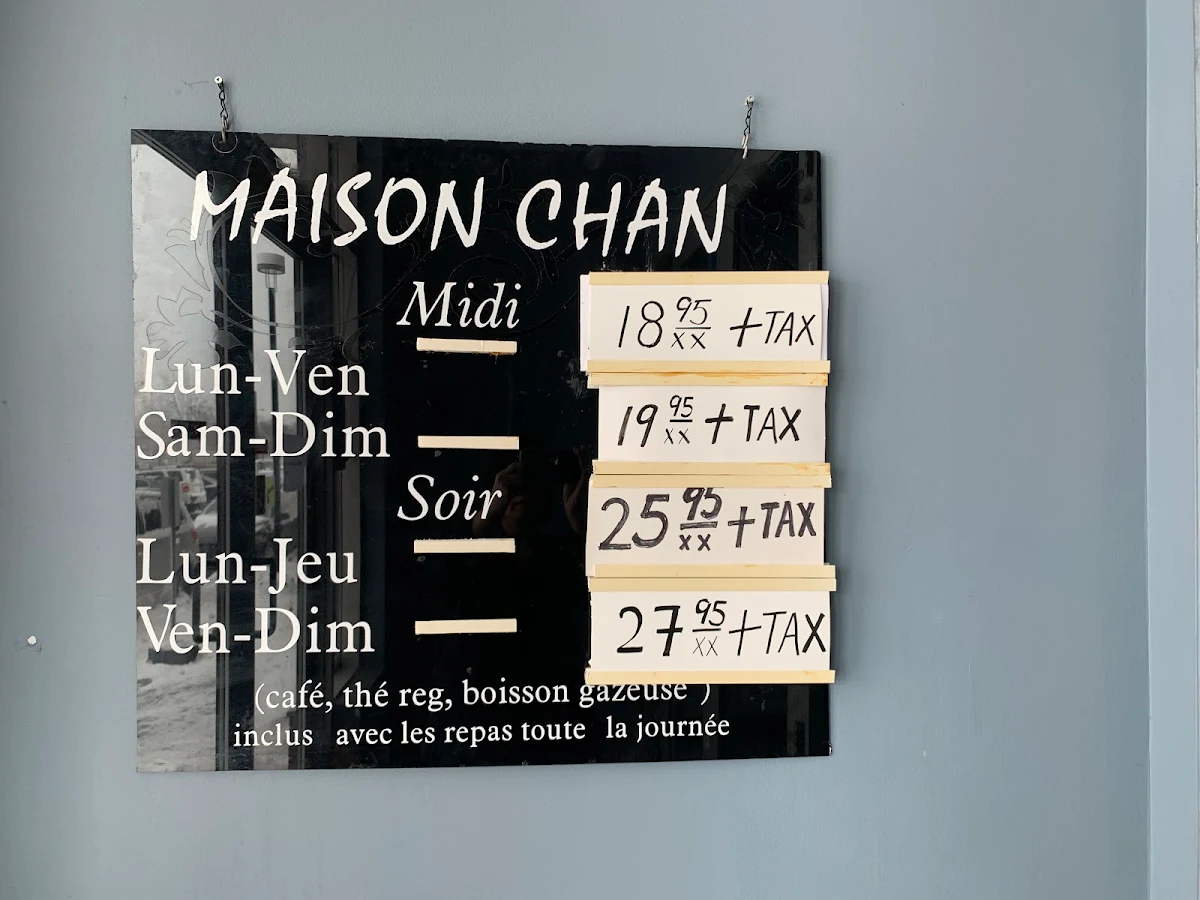 MAISON CHAN
Midi
18 95/xx + TAX
Lun-Ven
19 95/xx + TAX
Sam-Dim
Soir
25 95/xx + TAX
Lun-Jeu
27 95/xx + TAX
Ven-Dim
(café, thé reg, boisson gazeuse )
inclus avec les repas toute la journée